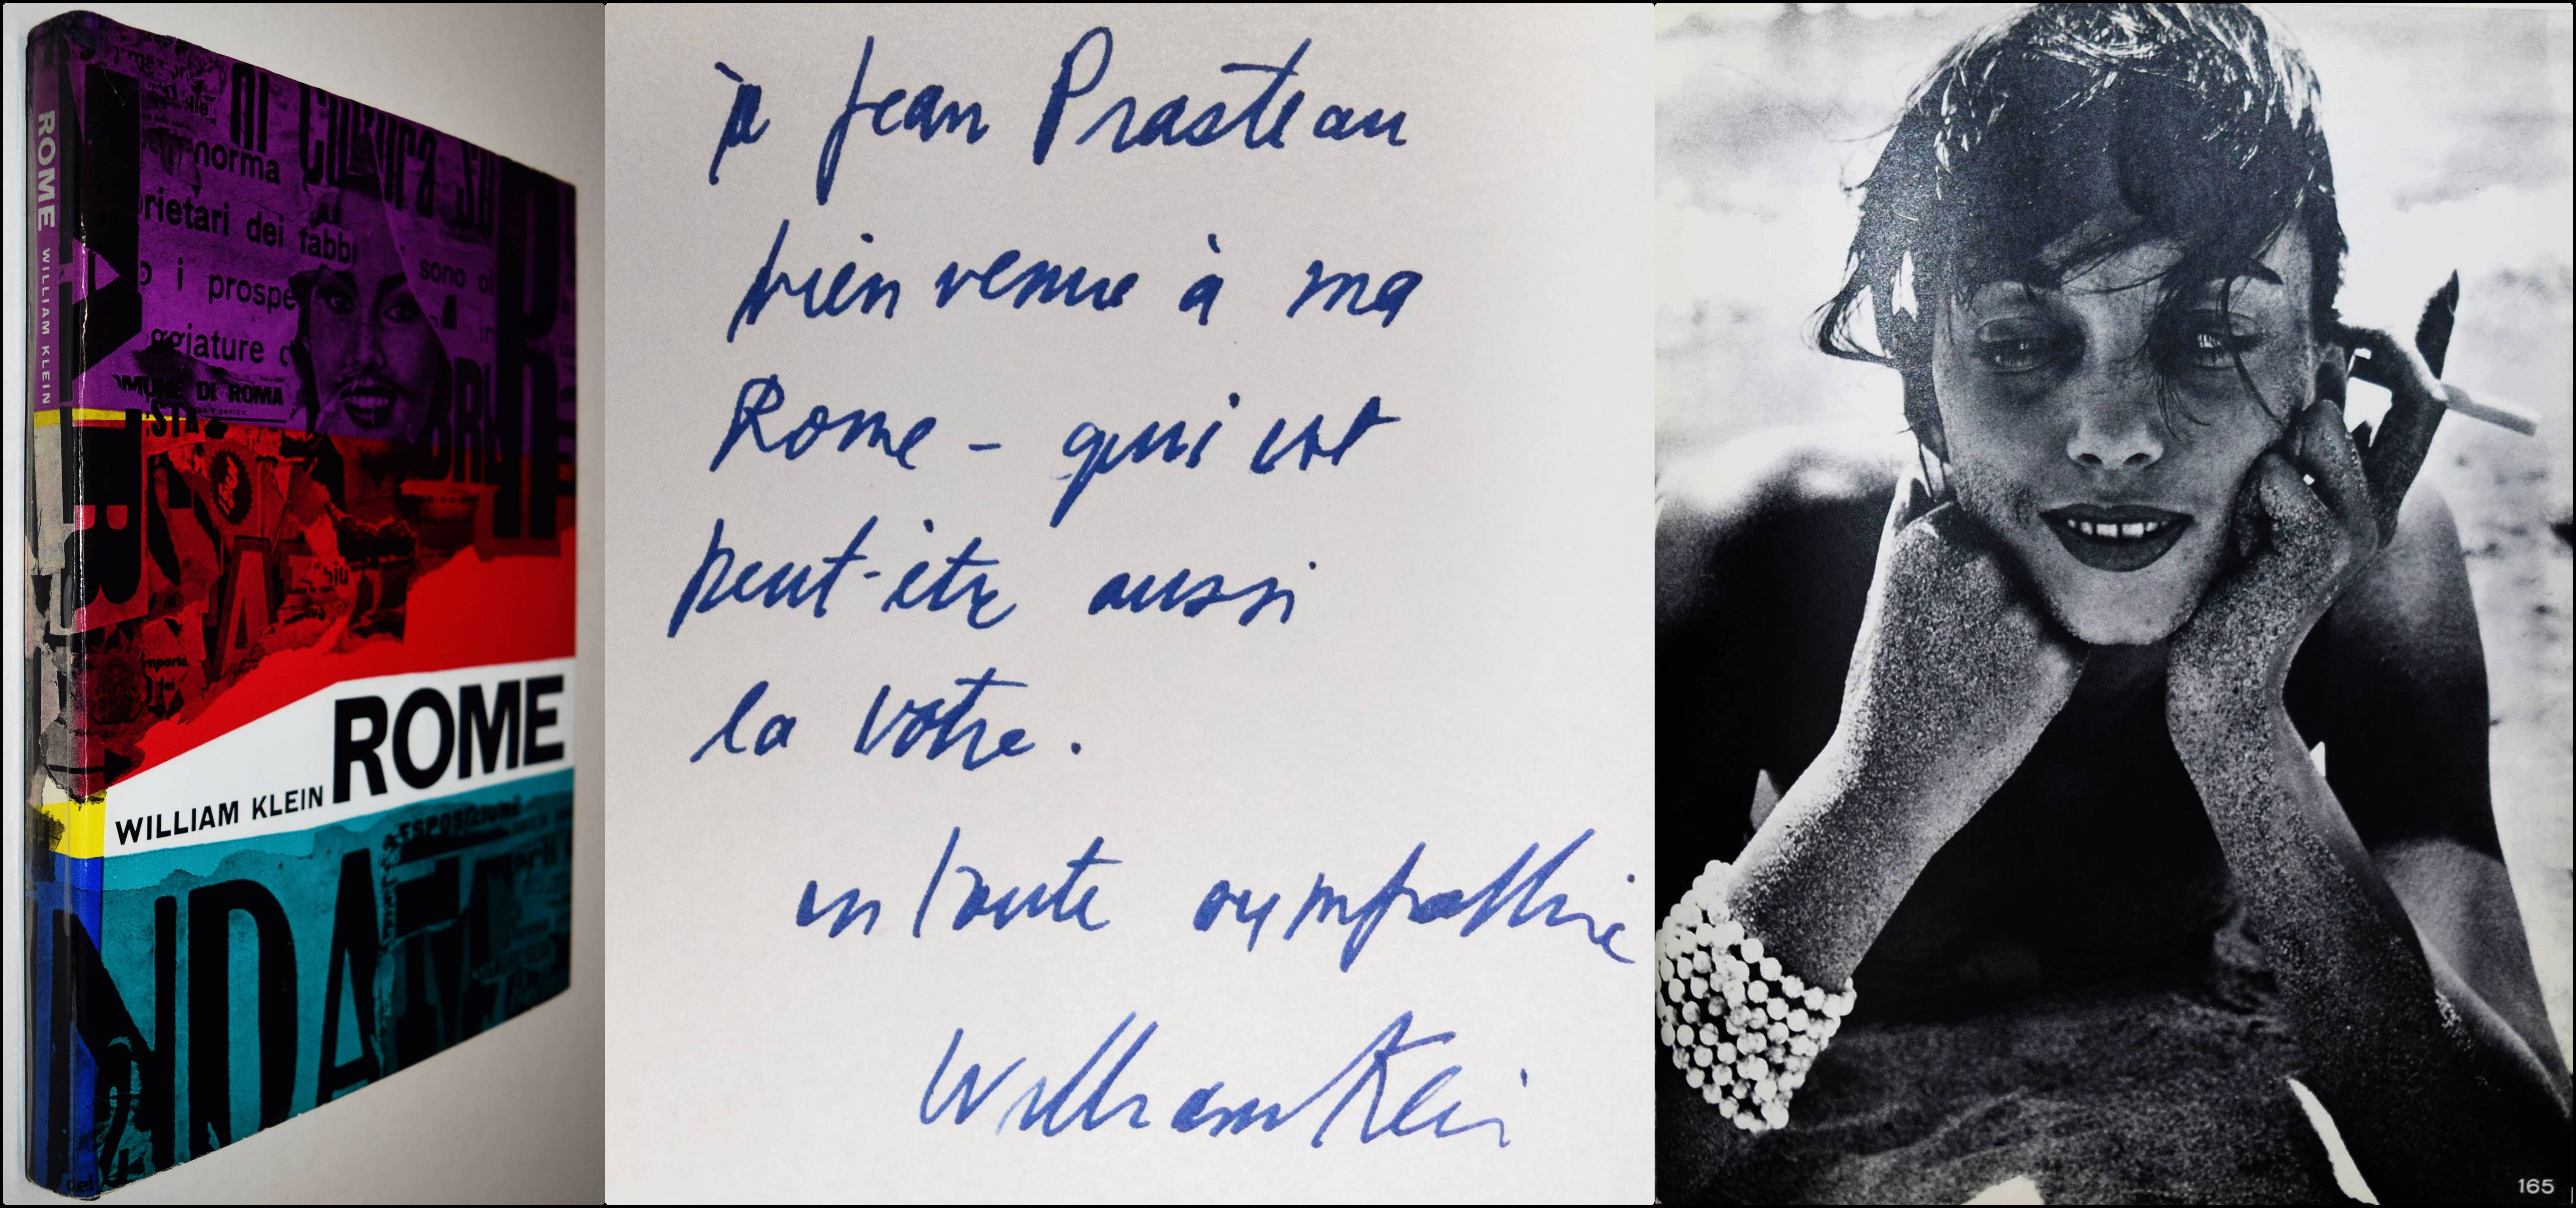 ROME WILLIAM KLEIN
norma
rietari dei fabbr
sono ol
o i prospe
ggiature
DI ROMA
STA
WILLIAM KLEIN ROME
ESPOSIZIONE
NDA
à Jean Prasteau
bienvenue à ma
Rome - qui est
peut-être aussi
la vôtre.
en toute sympathie
William Klein
165